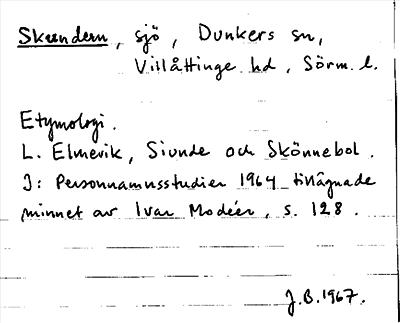 Skundern, sjö, Dunkers sn,
Villåttinge hd, Sörm. l.
Etymologi.
L. Elmevik, Siunde och Skönnebol.
I: Personnamnsstudier 1964 tillägnade
minnet av Ivar Modéer, s. 128.
J.B. 1967.